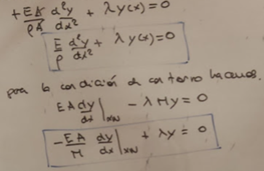 + EA/ρA d²y/dx² + λ y(x) = 0
E/ρ d²y/dx² + λ y(x) = 0
para la condición de contorno hacemos.
EA dy/dx | - λ M y = 0
- EA/M dy/dx | + λ y = 0